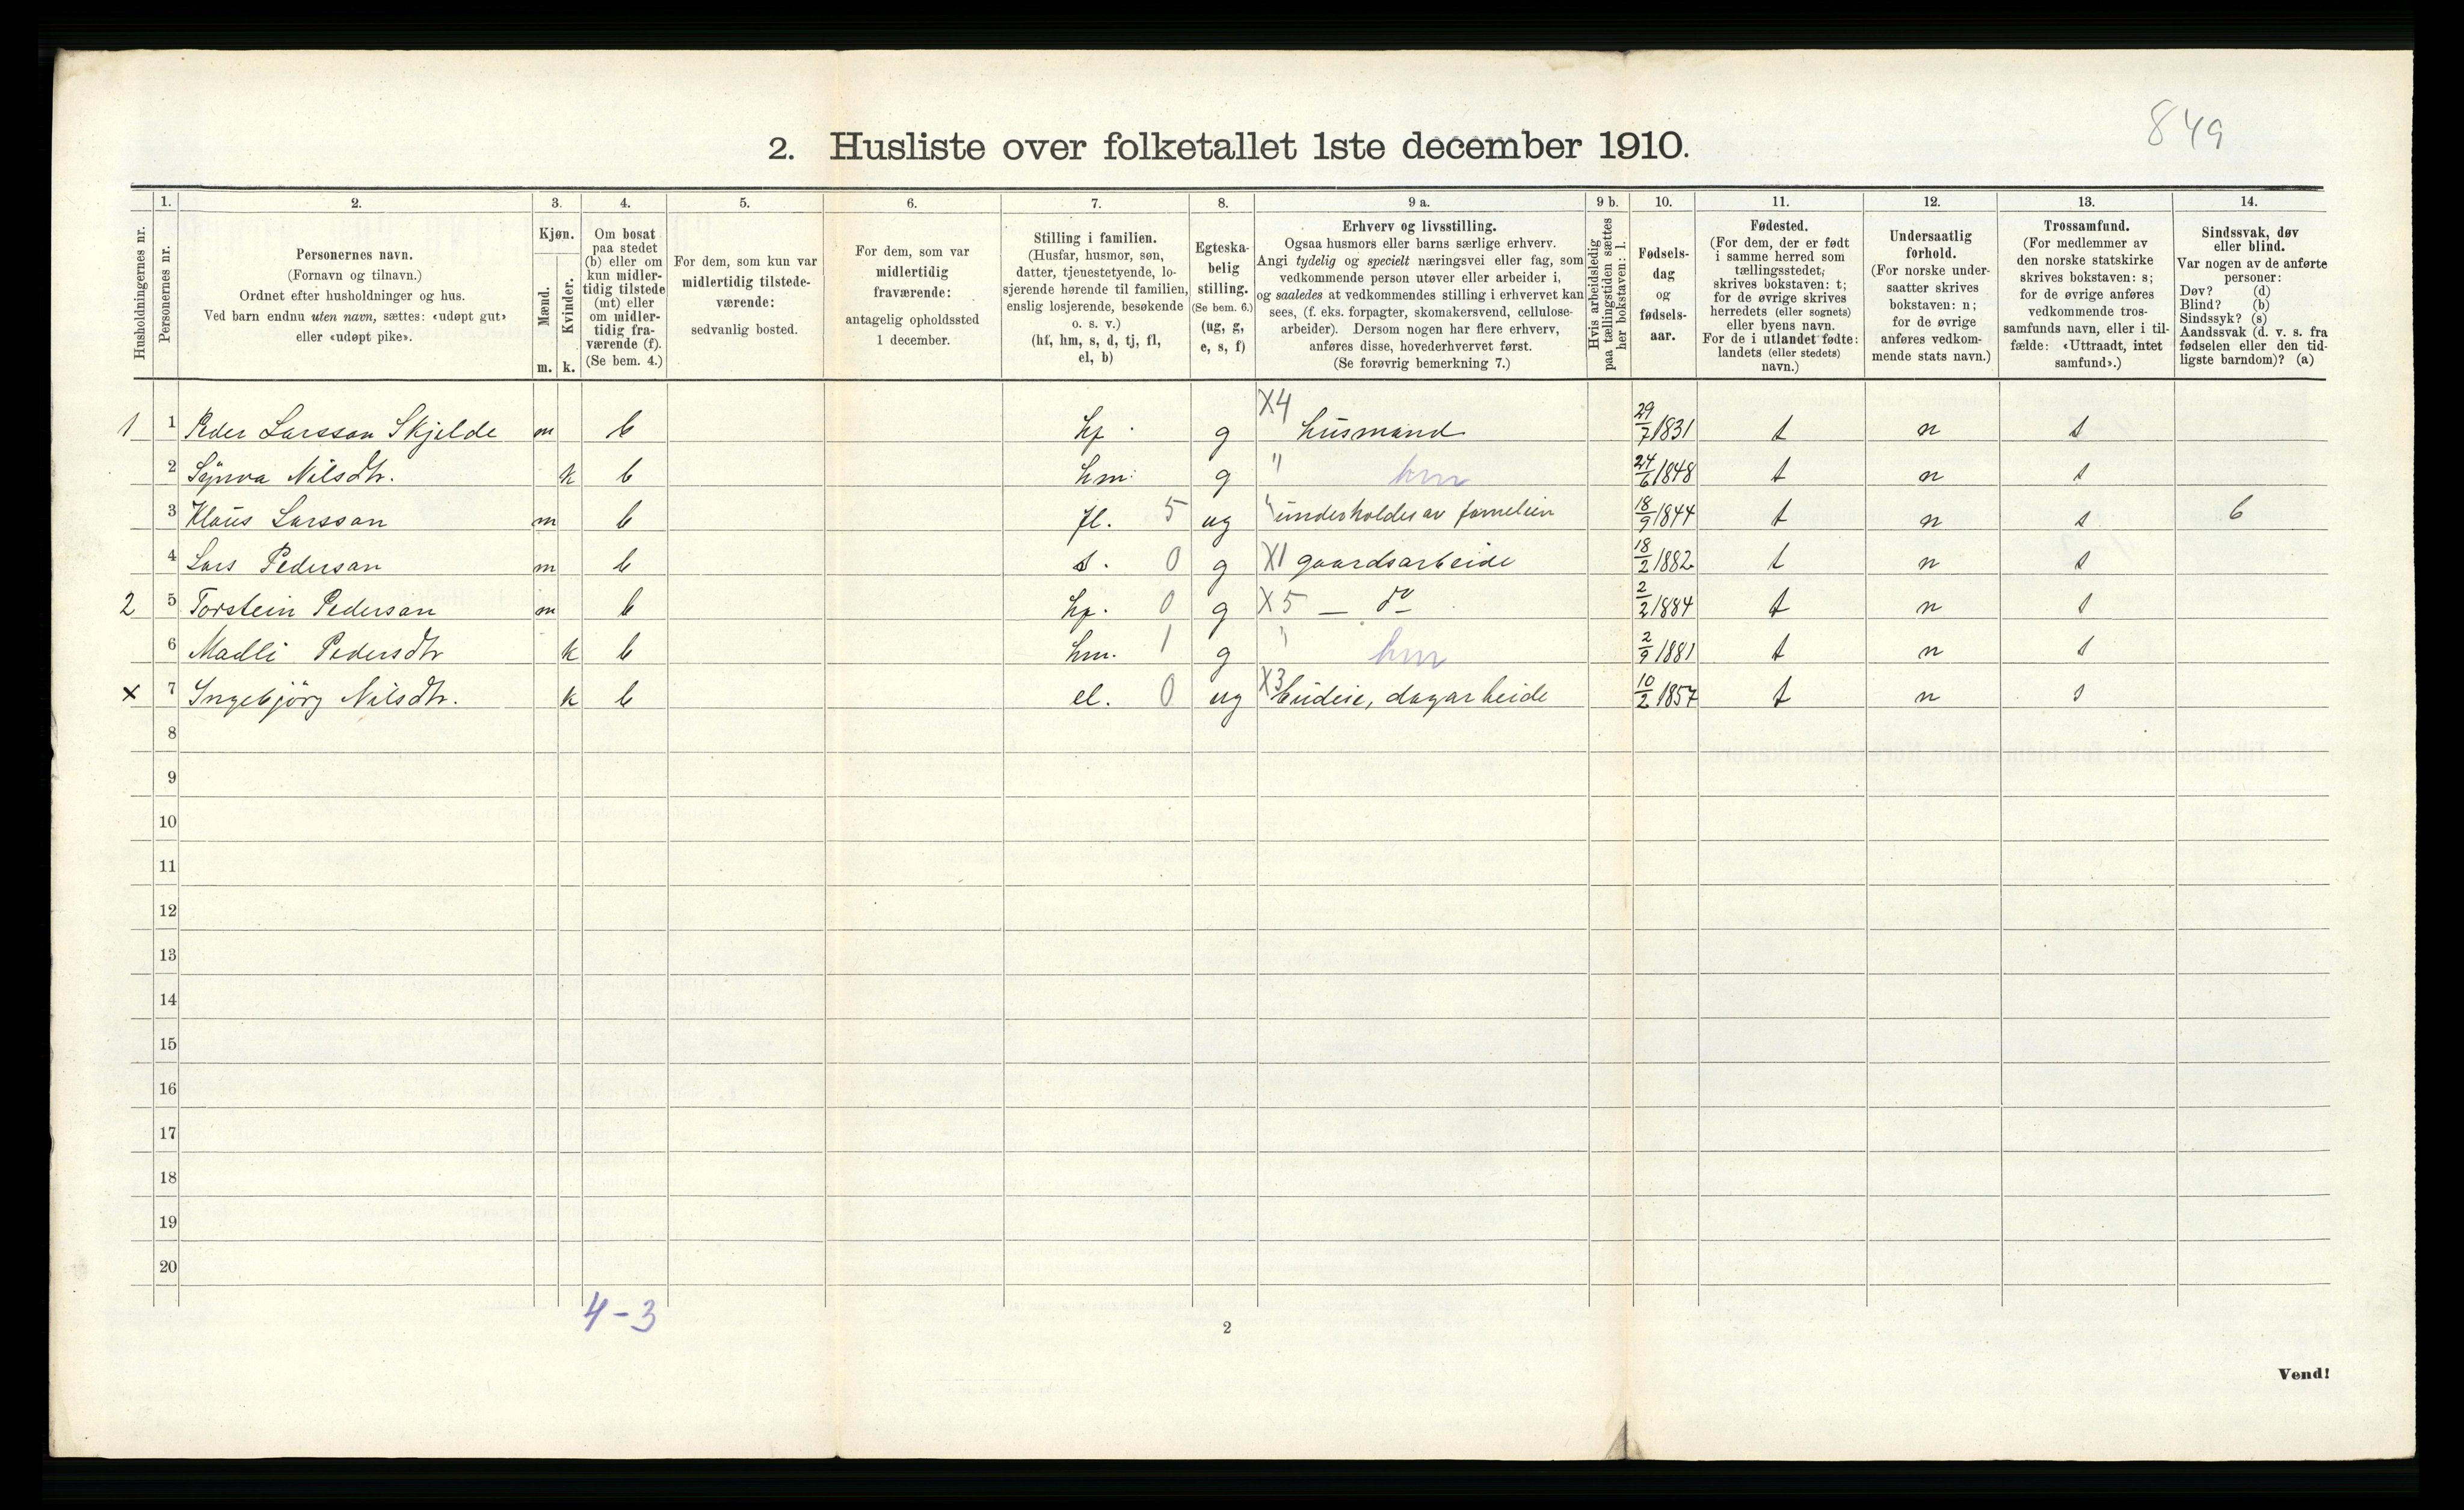 849
2. Husliste over folketallet 1ste december 1910.
Husholdningernes nr.
1.
Personernes nr.
2.
Personernes navn.
(Fornavn og tilnavn.)
Ordnet efter husholdninger og hus.
Ved barn endnu uten navn, sættes: «udøpt gut»
eller «udøpt pike».
3.
Kjøn.
Mænd.
Kvinder.
m. k.
4.
Om bosat
paa stedet
(b) eller om
kun midler-
tidig tilstede
(mt) eller
om midler-
tidig fra-
værende (f).
(Se bem. 4.)
5.
For dem, som kun var
midlertidig tilstede-
værende:
sedvanlig bosted.
6.
For dem, som var
midlertidig
fraværende:
antagelig opholdssted
1 december.
7.
Stilling i familien.
(Husfar, husmor, søn,
datter, tjenestetyende, lo-
sjerende hørende til familien,
enslig losjerende, besøkende
o. s. v.)
(hf, hm, s, d, tj, fl,
el, b)
8.
Egteska-
belig
stilling.
(Se bem. 6.)
(ug, g,
e, s, f)
9 a.
Erhverv og livsstilling.
Ogsaa husmors eller barns særlige erhverv.
Angi tydelig og specielt næringsvei eller fag, som
vedkommende person utøver eller arbeider i,
og saaledes at vedkommendes stilling i erhvervet kan
sees, (f. eks. forpagter, skomakersvend, cellulose-
arbeider). Dersom nogen har flere erhverv,
anføres disse, hovederhvervet først.
(Se forøvrig bemerkning 7.)
9 b.
Hvis arbeidsledig
paa tællingstiden sættes
her bokstaven: l.
10.
Fødsels-
dag
og
fødsels-
aar.
11.
Fødested.
(For dem, der er født
i samme herred som
tællingsstedet,
skrives bokstaven: t;
for de øvrige skrives
herredets (eller sognets)
eller byens navn.
For de i utlandet fødte:
landets (eller stedets)
navn.)
12.
Undersaatlig
forhold.
(For norske under-
saatter skrives
bokstaven: n;
for de øvrige
anføres vedkom-
mende stats navn.)
13.
Trossamfund.
(For medlemmer av
den norske statskirke
skrives bokstaven: s;
for de øvrige anføres
vedkommende tros-
samfunds navn, eller i til-
fælde: «Uttraadt, intet
samfund».)
14.
Sindssvak, døv
eller blind.
Var nogen av de anførte
personer:
Døv? (d)
Blind? (b)
Sindssyk? (s)
Aandssvak (d. v. s. fra
fødselen eller den tid-
ligste barndom)? (a)
1 1 Peder Larsson Skjelde m b hf. g X4 husmand 29/7 1831 t n s
2 Synva Nilsdtr. k b hm. g " hm 24/6 1848 t n s
3 Klaus Larsson m b fl. 5 ug " underholdes av familien 18/9 1844 t n s b
4 Lars Pederson m b s. 0 g X1 gaardsarbeide 18/2 1882 t n s
2 5 Torstein Pederson m b hf. 0 g X5 — do 2/2 1884 t n s
6 Madli Pedersdtr k b hm. 1 g " hm 2/9 1881 t n s
x 7 Ingebjörg Nilsdtr. k b el. 0 ug X3 dagarbeide 10/2 1857 t n s
8
9
10
11
12
13
14
15
16
17
18
19
20
4-3
2
Vend!